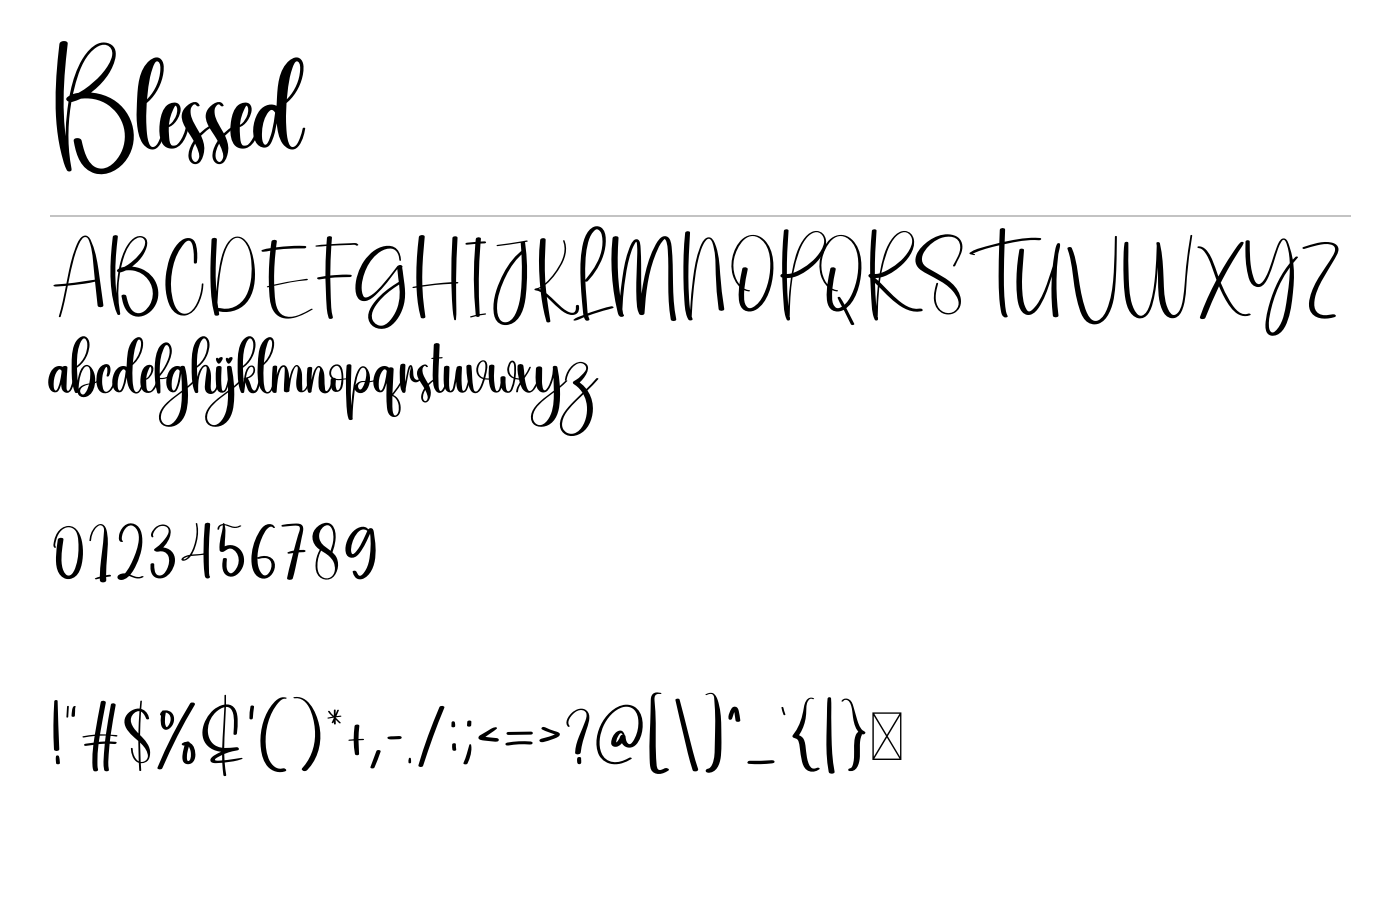 Blessed
ABCDEFGHIJKLMNOPQRSTUVWXYZ
abcdefghijklmnopqrstuvwxyz
0123456789
!"#$%&'()*+,-./:;<=>?@[\]^_`{|}